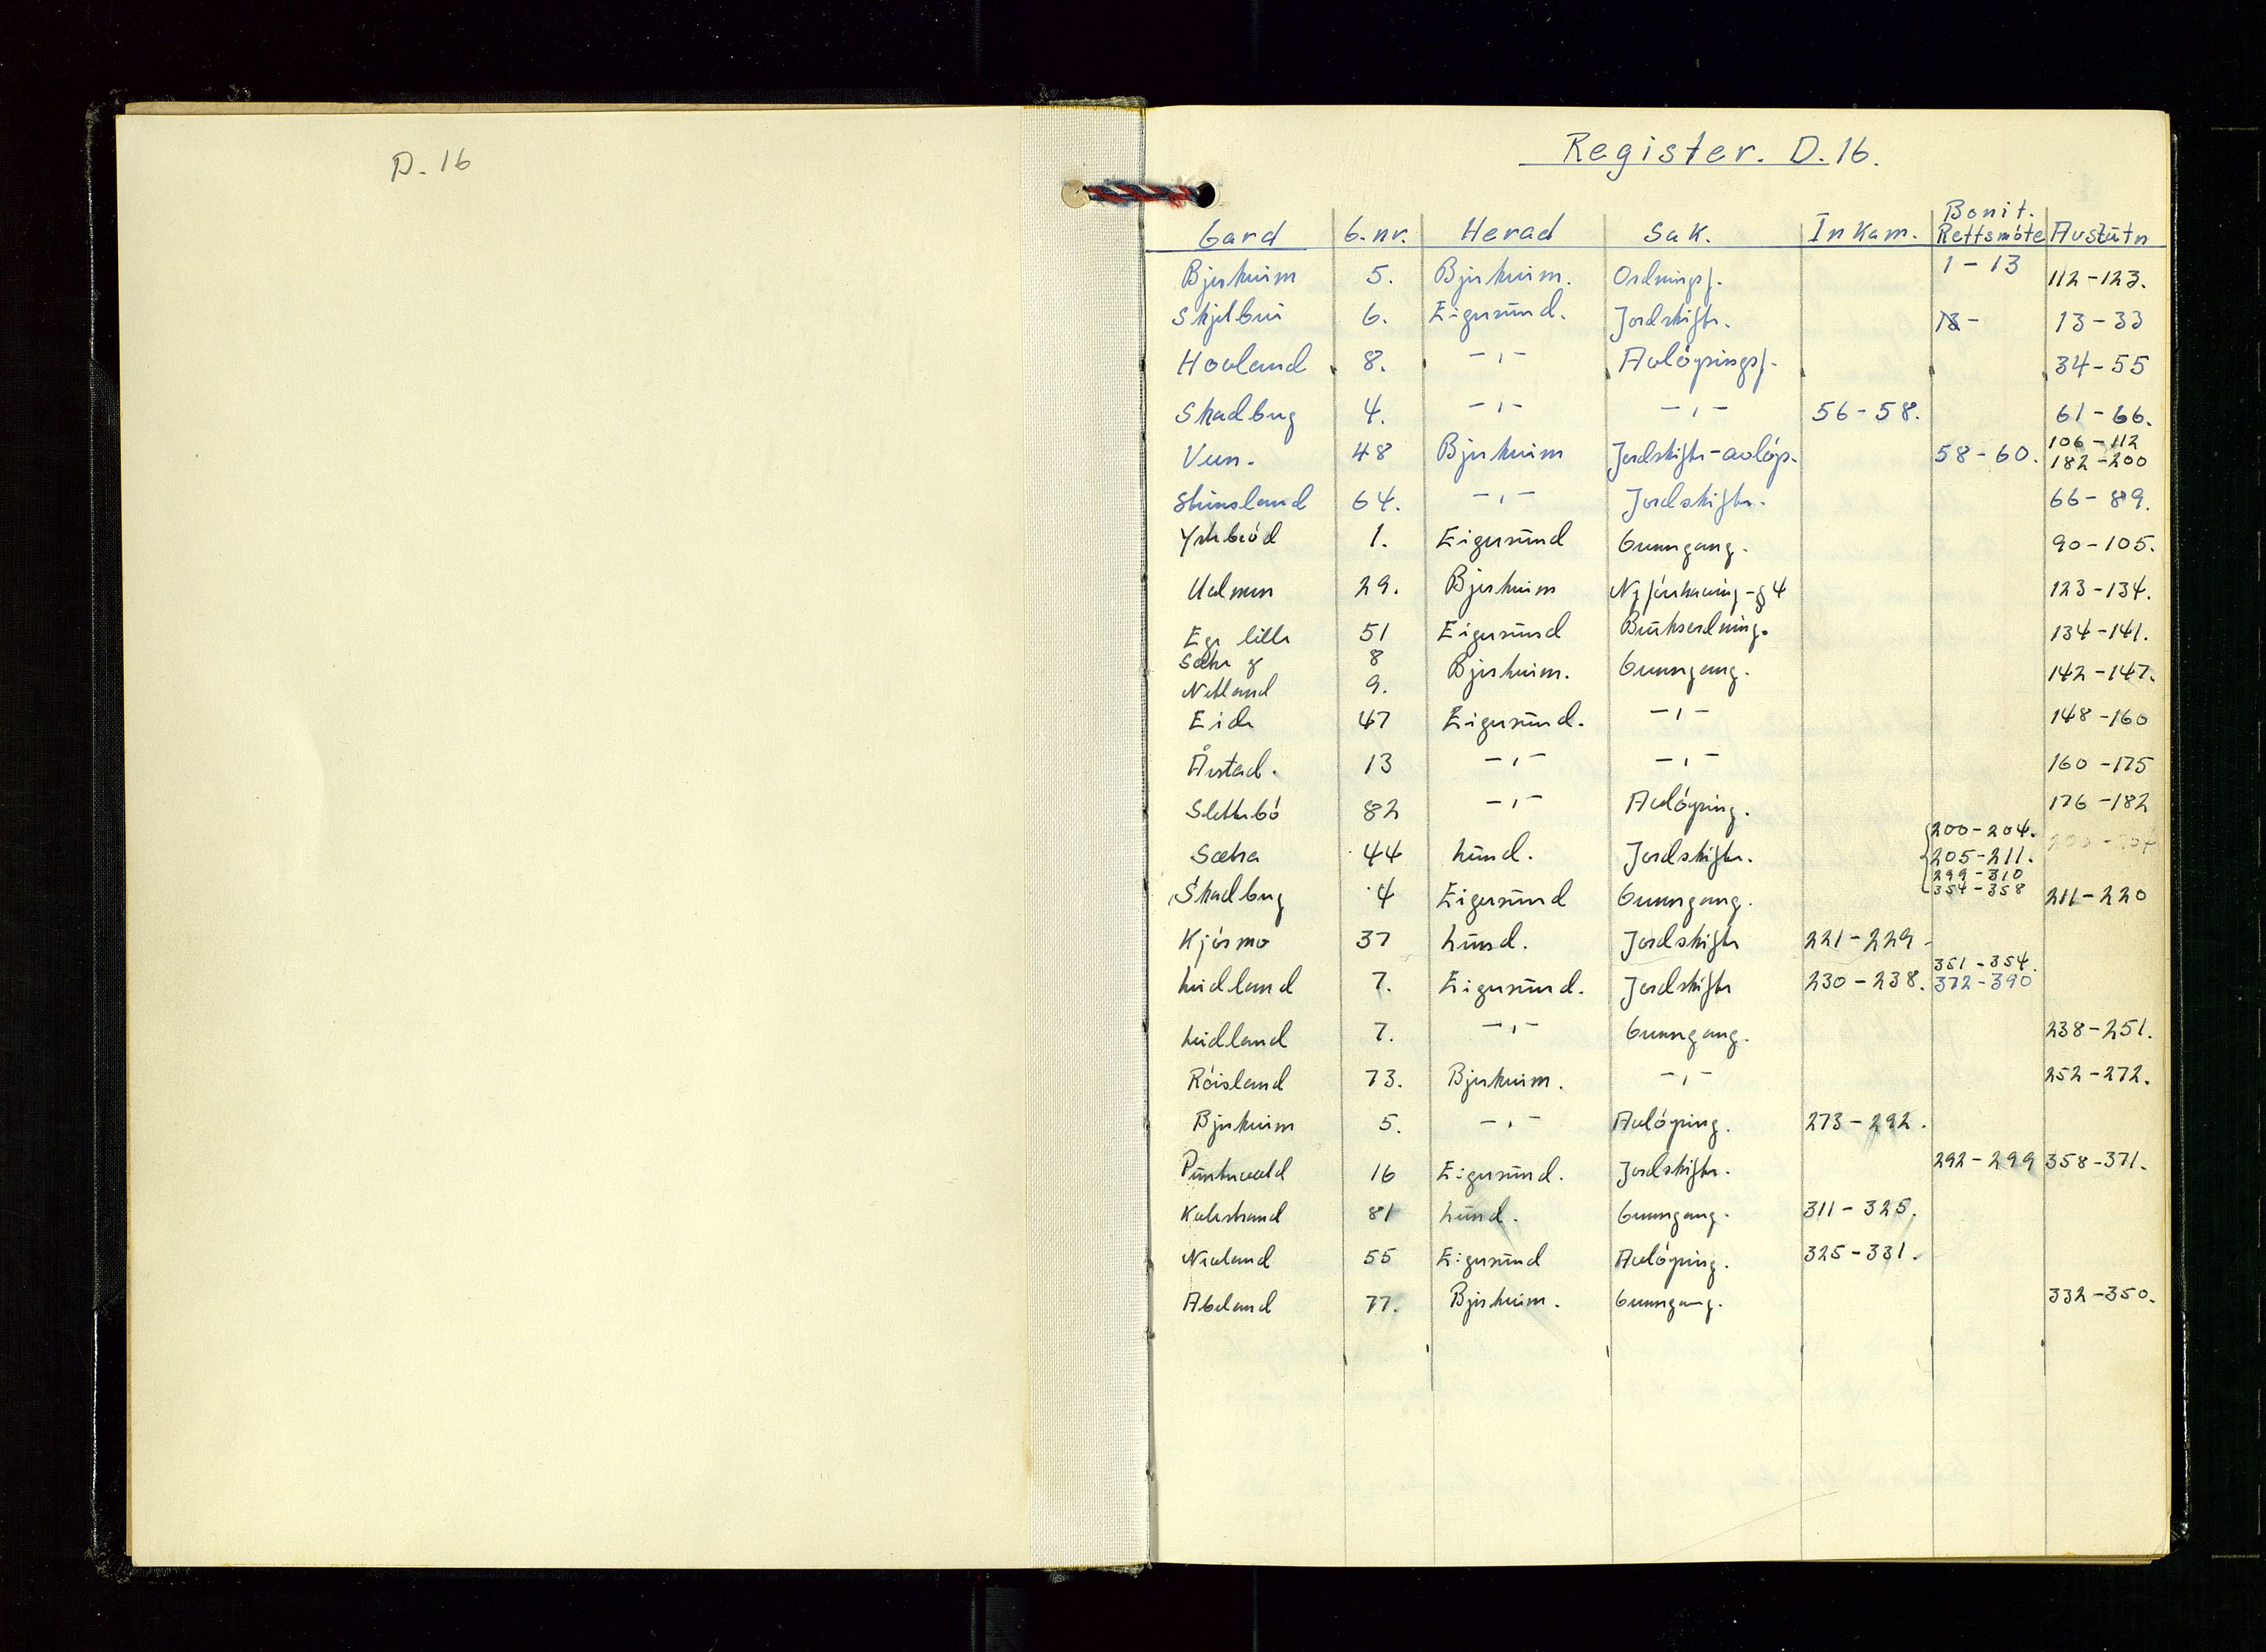 D. 16
Register. D. 16.
Gard G.nr. Herad Sak. Innkam. Bonit. Rettsmöte Avslutn
Bjerkreim 5. Bjerkreim. Ordningsf. 1-13 112-123.
Skjelbrei 6. Eigersund. Jordskifte. 13- 13-33
Hovland 8. -"- Avløysingsf. 34-55
Skadberg 4. -"- -"- 56-58. 61-66.
Veen. 48 Bjerkreim Jordskifte-avløys. 58-60. 106-112 182-200
64. -"- Jordskifte. 66-89.
Ystebröd 1. Eigersund Grenngang. 90-105.
29. Bjerkreim -§4 123-134.
Ege lille 51 Eigersund Bruksordning. 134-141.
Sætre og 8 Bjerkreim. Grenngang. 142-147.
Netland 9.
Eide 47 Eigersund. -"- 148-160
Årstad. 13 -"- -"- 160-175
Slettebö 82 -"- Avløysing. 176-182
Sætra 44 Lund. Jordskifte. 200-204. 205-211. 299-310 354-358
Skadberg 4 Eigersund Grenngang. 211-220
Kjörmo 37 Lund. Jordskifte 221-229
Leidland 7. Eigersund. Jordskifte 230-238. 351-354. 372-390
Leidland 7. -"- Grenngang. 238-251.
Röisland 73. Bjerkreim. -"- 252-272.
Bjerkreim 5. -"- Avløysing. 273-292.
Puntervold 16 Eigersund. Jordskifte. 292-299 358-371.
Kalstrand 81 Lund. Grenngang. 311-325.
Nevland 55 Eigersund Avløysing. 325-331.
Abeland 77. Bjerkreim. Grenngang. 332-350.